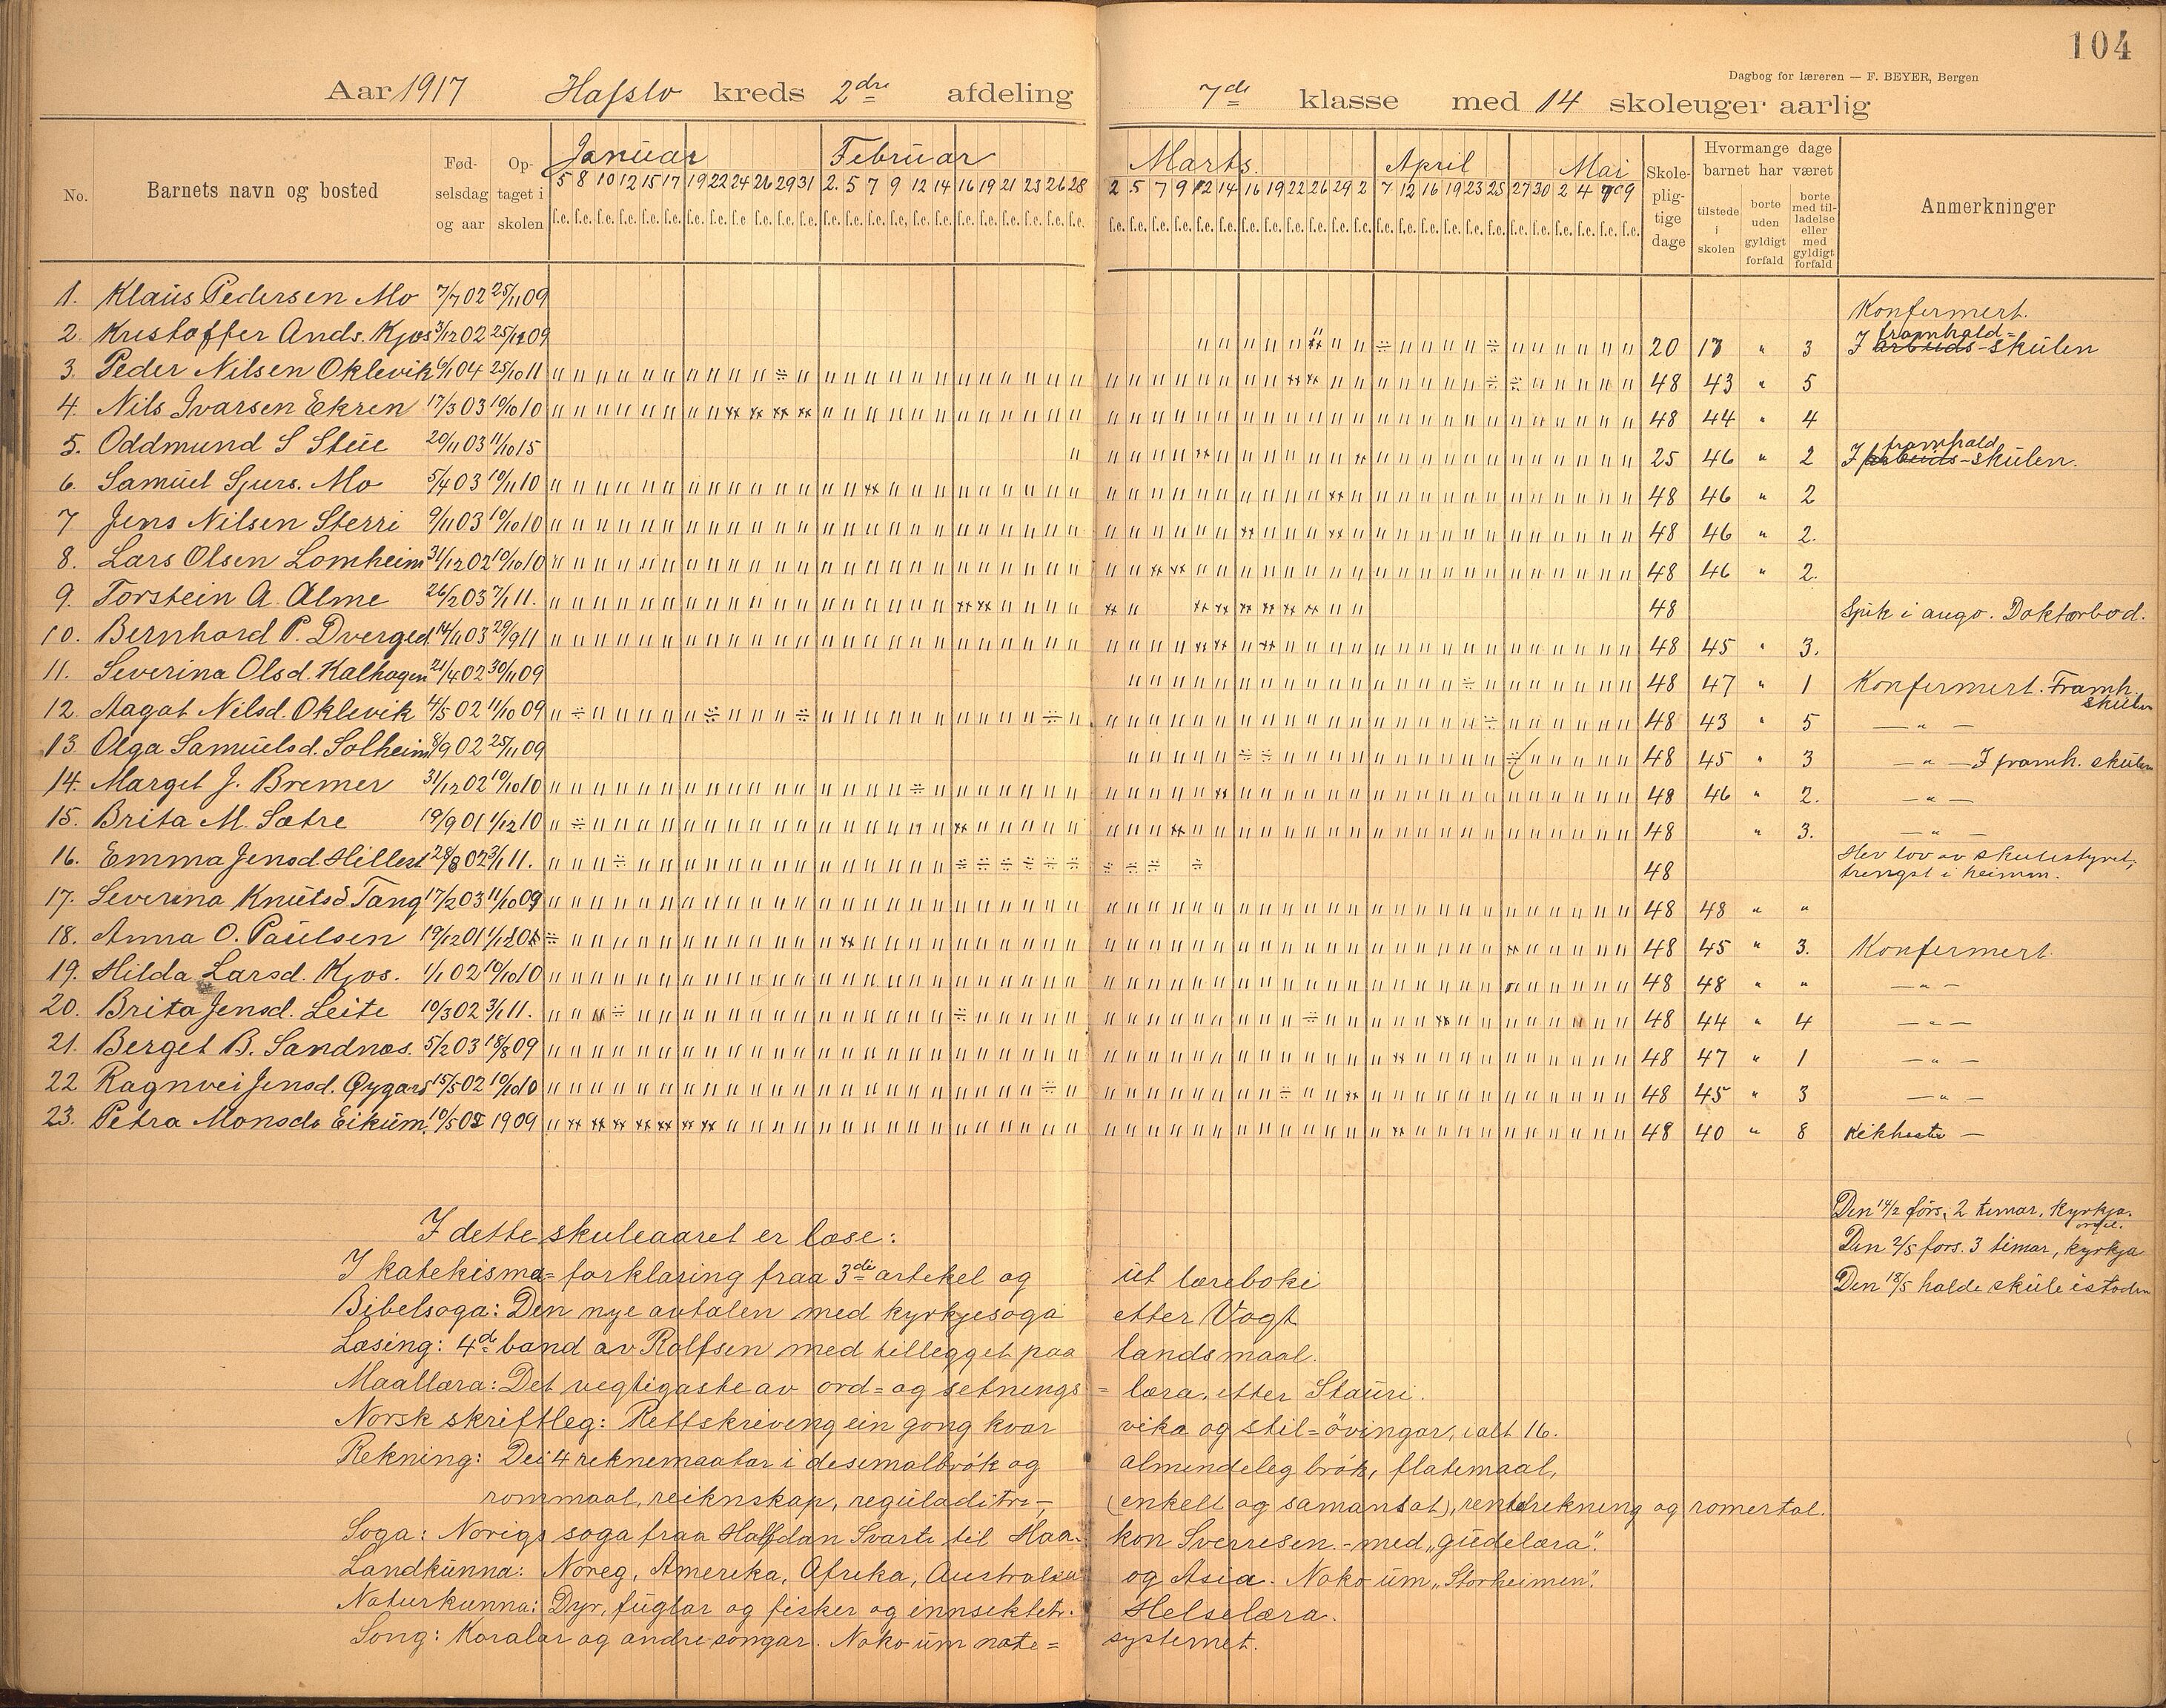 104
Dagbog for læreren — F. BEYER, Bergen
Aar 1917 Hafslo kreds 2dre afdeling 7de klasse med 14 skoleuger aarlig
No. Barnets navn og bosted Fød-selsdag og aar Op-taget i skolen Januar Februar Marts. April Mai Skole-plig-tige dage Hvormange dage barnet har været tilstede i skolen borte uden gyldigt forfald borte med til-ladelse eller med gyldigt forfald Anmerkninger
5 8 10 12 15 17 19 22 24 26 29 31 2. 5 7 9 12 14 16 19 21 23 26 28 2 5 7 9 12 14 16 19 22 26 29 2 7 12 16 19 23 25 27 30 2 4 7 9
1. Klaus Pedersen Mo 7/7 02 25/11 09 Konfermert.
2. Kristoffer Ands. Kjos 3/12 02 25/11 09 20 17 " 3 I framhald-skulen
3. Peder Nilsen Oklevik 6/1 04 25/10 11 48 43 " 5
4. Nils Ivarsen Ekren 17/3 03 10/10 10 48 44 " 4
5. Oddmund S Steie 20/11 03 11/10 15 25 46 " 2 I framhald-skulen.
6. Samuel Sjurs. Mo 5/4 03 10/11 10 48 46 " 2
7 Jens Nilsen Sterri 9/11 03 10/10 10 48 46 " 2.
8. Lars Olsen Lomheim 31/12 02 10/10 10 48 46 " 2.
9. Torstein A. Alme 26/2 03 7/1 11. 48 Spik i augo. Doktorbod.
10. Bernhard P. Dverged. 14/11 03 29/9 11 48 45 " 3.
11. Severina Olsd. Kalhagen 21/4 02 30/11 09 48 47 " 1 Konfermert. Framh. skulen
12. Aagot Nilsd. Oklevik 4/5 02 11/10 09 48 43 " 5 — " —
13. Olga Samuelsd. Solheim 8/9 02 25/11 09 48 45 " 3 — " — I framh. skulen
14. Marget J. Bremer 31/12 02 10/10 10 48 46 " 2. — " —
15. Brita M. Sætre 19/9 01 1/12 10 48 " 3. — " —
16. Emma Jensd. Hillest 28/8 02 3/1 11. 48 Hev lov av skulestyret, trengst i heimen.
17. Severina Knutsd Tang 17/2 03 11/10 09 48 48 " "
18. Anna O. Paulsen 19/12 01 48 45 " 3. Konfermert.
19. Hilda Larsd. Kjos. 1/1 02 10/10 10 48 48 " " — " —
20. Brita Jensd. Leite 10/3 02 3/1 11. 48 44 " 4 — " —
21. Berget B. Sandnæs. 5/2 03 18/8 09 48 47 " 1 — " —
22 Ragnvei Jensd. Øygard 15/5 02 10/10 10 48 45 " 3 — " —
23. Petra Monsd. Eikum. 10/5 02 1909 48 40 " 8 Kikhoste —
Den 14/2 førs. 2 timar, kyrkja.
Den 2/5 fors. 3 timar, kyrkja
Den 18/5 halde skule istaden
I dette skuleaaret er læse:
I katekisma-forklaring fraa 3die artekel og ut læreboki
Bibelsoga: Den nye avtalen med kyrkjesoga etter Vogt
Læsing: 4de band av Rolfsen med tillegget paa landsmaal.
Maallæra: Det vegtigaste av ord- og setnings-læra, etter Stauri.
Norsk skriftleg: Rettskriveng ein gong kvar vika og stil-övingar, ialt 16.
Rekning: Dei 4 reknemaatar i desimalbrök og almindeleg brök, flatemaal,
rommaal, reiknskap, reguladitri— (enkelt og samansat), renterekning og romertal.
Soga: Norigs soga fraa Halfdan Svarte til Haakon Sverresen. - med "gudelæra".
Landkunna: Noreg, Amerika, Afrika, Australia og Asia. Noko um "Storheimen".
Naturkunna: Dyr, fuglar og fisker og innsekter. Helselæra.
Song: Koralar og andre songar. Noko um note-systemet.